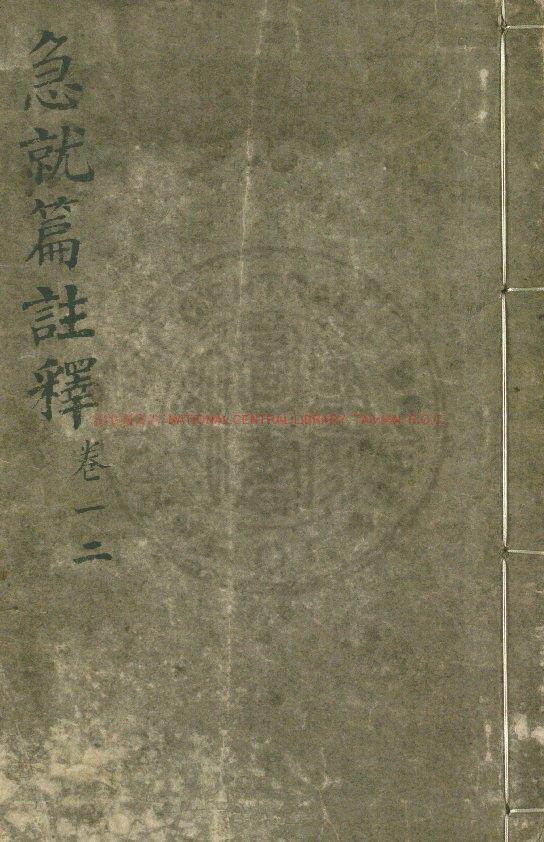 急就篇註釋
卷一二
NATIONAL CENTRAL LIBRARY, TAIWAN, R.O.C.